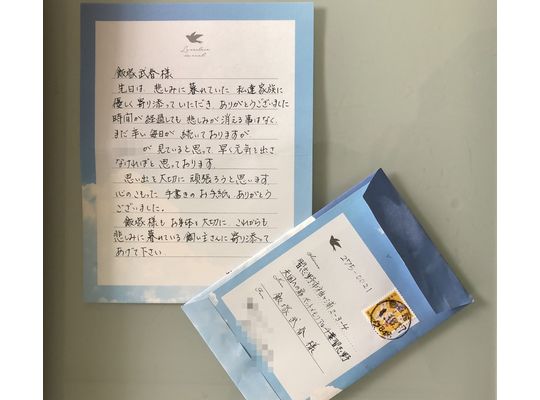 飯塚武春様
先日は、悲しみに暮れていた 私達家族に
優しく寄り添っていただき、ありがとうございました
時間が経過しても 悲しみが消える事はなく
まだ辛い毎日が 続いておりますが
が 見ていると思って 早く元気を出さ
なければと 思っております
思い出を大切に 頑張ろうと思います
心のこもった 手書きのお手紙、ありがとう
ございました。
飯塚様も お身体を大切に これからも
悲しみに暮れている 飼い主さんに 寄り添って
あげて下さい
275-0021
習志野市袖ケ浦2-3-4
飯塚武春様